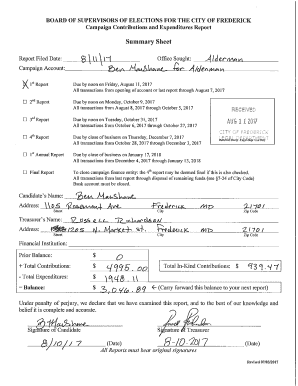 BOARD OF SUPERVISORS OF ELECTIONS FOR THE CITY OF FREDERICK
Campaign Contributions and Expenditures Report
Summary Sheet
Report Filed Date: 8/11/17 Office Sought: Alderman
Campaign Account: Ben MacShane for Alderman
X 1st Report Due by noon on Friday, August 11, 2017
All transactions from opening of account or last report through August 7, 2017
2nd Report Due by noon on Monday, October 9, 2017
All transactions from August 8, 2017 through October 5, 2017
3rd Report Due by noon on Tuesday, October 31, 2017
All transactions from October 6, 2017 through October 27, 2017
4th Report Due by close of business on Thursday, December 7, 2017
All transactions from October 28, 2017 through December 3, 2017
1st Annual Report Due by close of business on January 17, 2018
All transactions from December 4, 2017 through January 13, 2018
Final Report To close campaign finance entity: the 4th report may be deemed final if this is also checked.
All transactions from last report through disposal of remaining funds (see §7-34 of City Code)
Bank account must be closed.
RECEIVED
AUG 11 2017
CITY OF FREDERICK
Candidate's Name: Ben MacShane
Address: Rosemont Ave Frederick MD 21701
Street City State Zip Code
Treasurer's Name: Richardson
Address: 1205 N. Market St. Frederick MD 21701
Street City State Zip Code
Financial Institution:
Prior Balance: $ 0
+ Total Contributions: $ 4995.00 Total In-Kind Contributions: $ 939.47
- Total Expenditures: $ 1948.11
= Balance: $ 3,046.89 (Carry forward this balance to your next report)
Under penalty of perjury, we declare that we have examined this report, and to the best of our knowledge and
belief it is complete and accurate.
Signature of Candidate Signature of Treasurer
8/10/17 (Date) 8-10-2017 (Date)
All Reports must bear original signatures